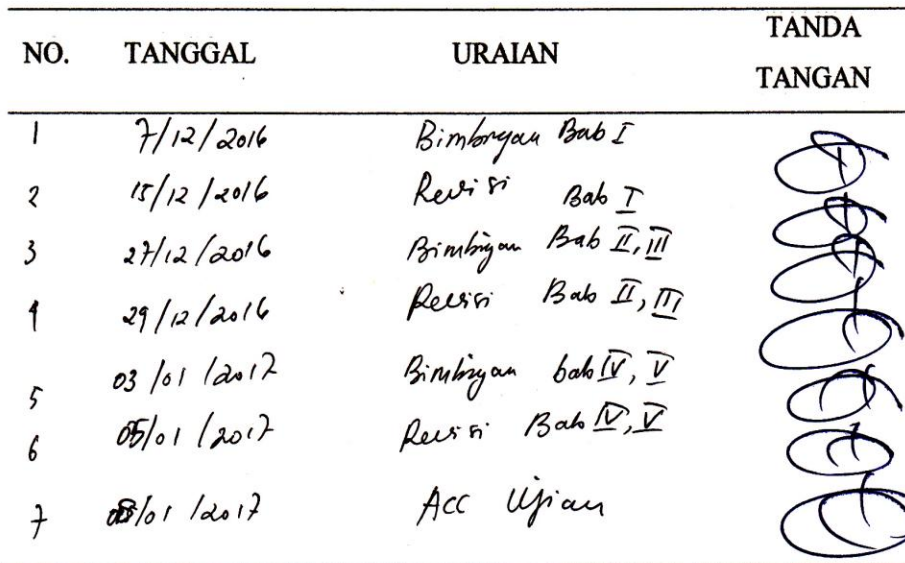 NO. TANGGAL URAIAN TANDA TANGAN
1 7/12/2016 Bimbingan Bab I
2 15/12/2016 Revisi Bab I
3 27/12/2016 Bimbingan Bab II, III
4 29/12/2016 Revisi Bab II, III
5 03/01/2017 Bimbingan bab IV, V
6 05/01/2017 Revisi Bab IV, V
7 /01/2017 Acc Ujian